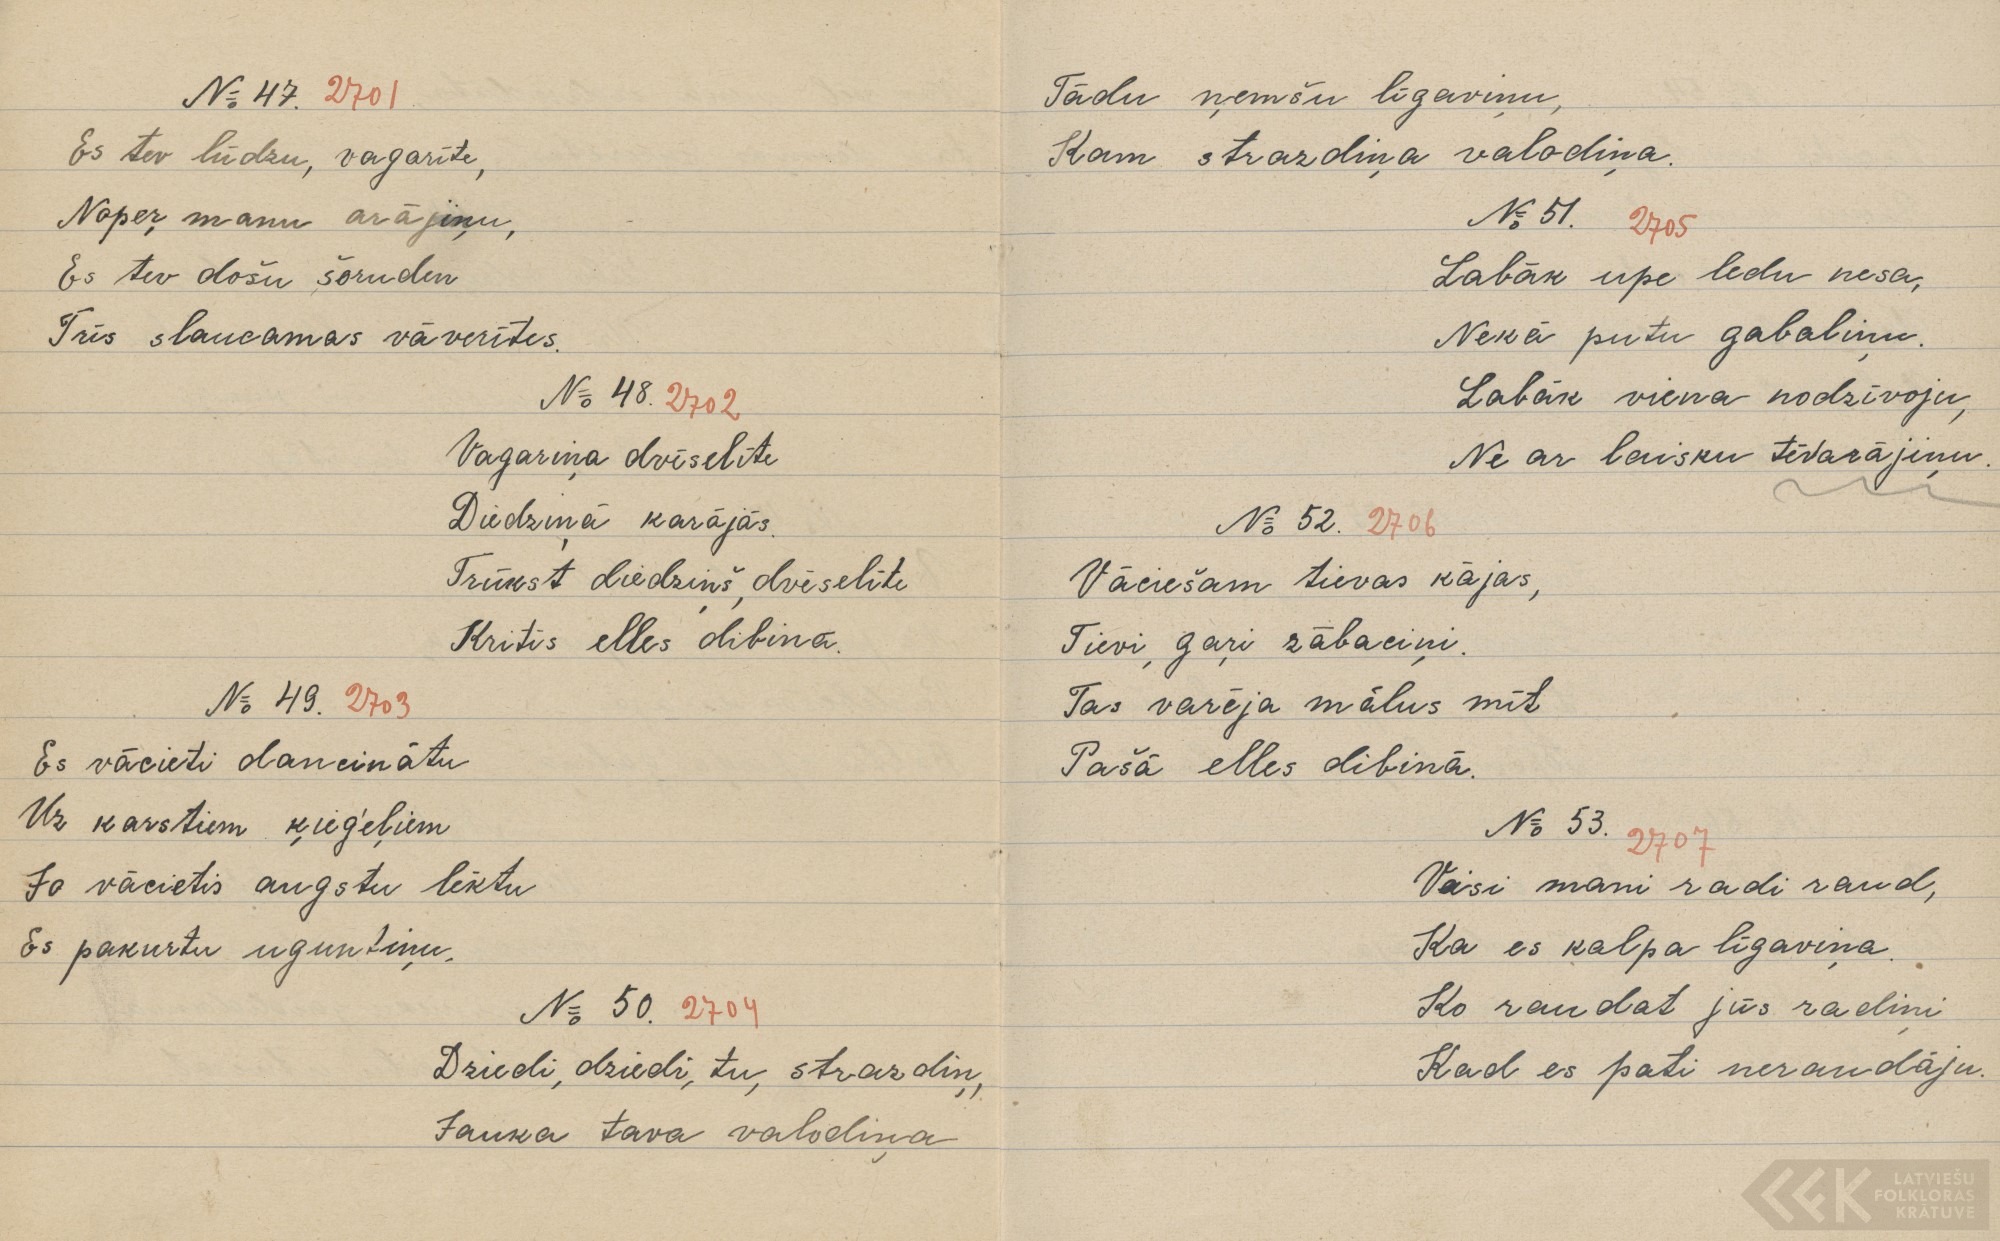 № 47. 2701
Es tev lūdzu, vagarīte,
Noper, manu arājiņu,
Es tev došu šoruden
Trīs slaucamas vāverītes.
№ 48. 2702
Vagariņa dvēselīte
Diedziņā karājās.
Trūkst diedziņš, dvēselīte
Kritīs elles dibinā.
№ 49. 2703
Es vācieti dancinātu
Uz karstiem ķieģeļiem
Ja vācietis augstu lēktu
Es pakurtu uguntiņu.
№ 50. 2704
Dziedi, dziedi, tu, strazdiņ,
Jauka tava valodiņa
Tādu ņemšu līgaviņu,
Kam strazdiņa valodiņa.
№ 51. 2705
Labāk upe ledu nesa,
Nekā putu gabaliņu.
Labāk viena nodzīvoju,
Ne ar laisku tēvarājiņu.
№ 52. 2706
Vāciešam tievas kājas,
Tievi, gaŗi zābaciņi.
Tas varēja mālus mīt
Pašā elles dibinā.
№ 53. 2707
Visi mani radi raud,
Ka es kalpa līgaviņa.
Ko raudat jūs radiņi
Kad es pati neraudāju.
LATVIEŠU
FOLKLORAS
KRĀTUVE